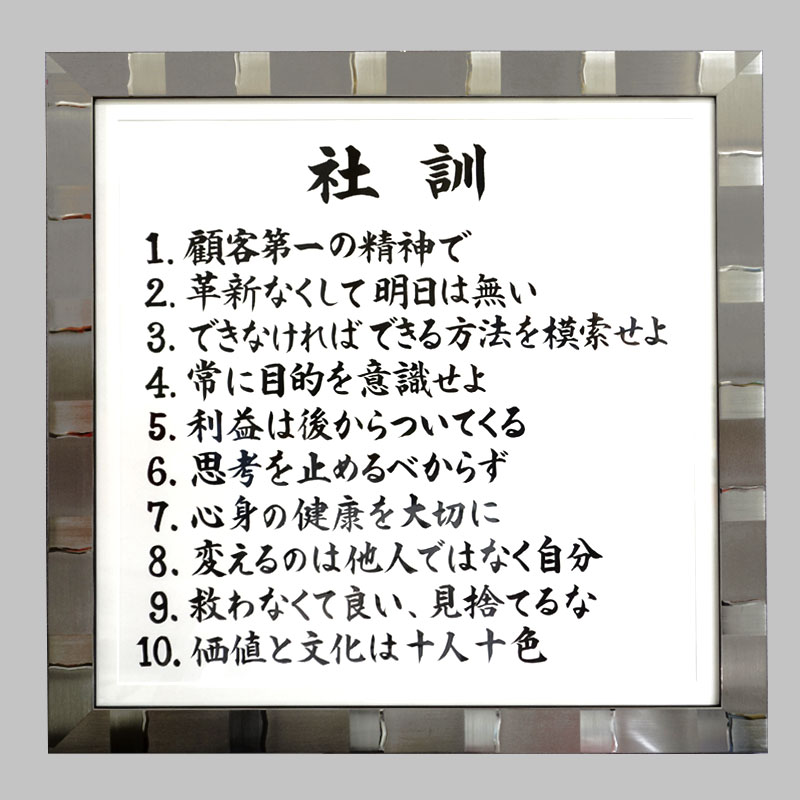 社 訓
1. 顧客第一の精神で
2. 革新なくして明日は無い
3. できなければできる方法を模索せよ
4. 常に目的を意識せよ
5. 利益は後からついてくる
6. 思考を止めるべからず
7. 心身の健康を大切に
8. 変えるのは他人ではなく自分
9. 救わなくて良い、見捨てるな
10. 価値と文化は十人十色